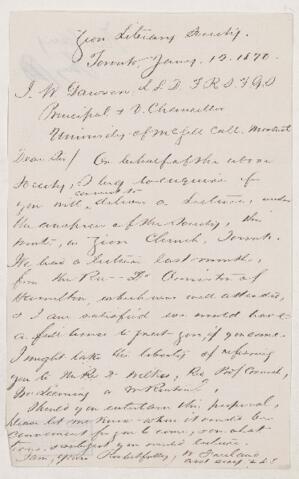 Zion Literary Society.
Toronto Jany. 12. 1870.
J. W Dawson L L D F R S F G S
Principal & V. Chancellor
University of McGill Coll. Montreal
Dear Sir/ On behalf of the above
Society, I beg to enquire if
you will consent to deliver a Lecture, under
the auspices of the Society, this
in Zion Church, Toronto.
We had a lecture last month,
from the Rev. Dr Ormiston of
Hamilton, which was well attended,
& I am satisfied we would have
a full house to greet you, if you come.
I might take the liberty of referring
you to the Rev Dr Wilkes, Rev. Prof Cornish,
or
Should you entertain this proposal,
please let me know when it would be
convenient for you to come, & on what
subject you would lecture.
I am, Yours Respectfully,